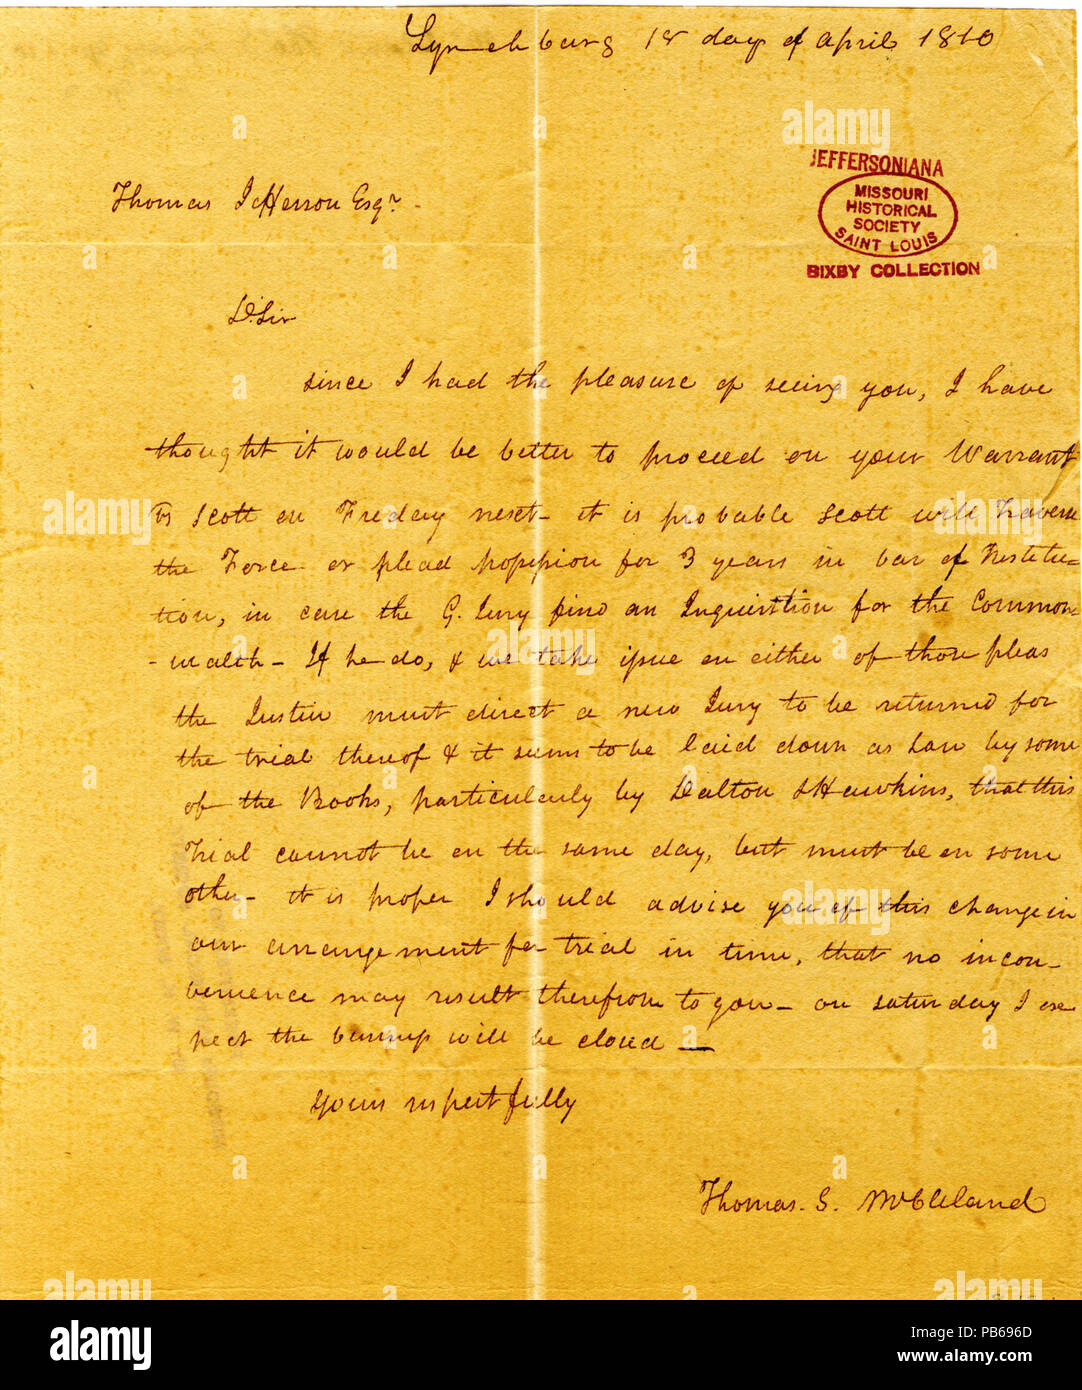 Lynchburg 18 day of April 1810
JEFFERSONIANA
MISSOURI
HISTORICAL
SOCIETY
SAINT LOUIS
BIXBY COLLECTION
Thomas Jefferson Esqr.
Dr. Sir
since I had the pleasure of seeing you, I have
thought it would be better to proceed on your Warrant
vs Scott on Friday next— it is probable Scott will Traverse
the Force or plead possession for 3 years in bar of Restitu=
tion, in case the G. Jury find an Inquisition for the Common=
-wealth— If he do, & we take issue on either of those pleas
the Justices must direct a new Jury to be returned for
the trial thereof & it seems to be laid down as Law by some
of the Books, particularly by Dalton & Hawkins, that this
Trial cannot be on the same day, but must be on some
other— it is proper I should advise you of this change in
our arrangement for trial in time, that no incon-
venience may result therefrom to you— on saturday I ex
pect the business will be closed —
yours respectfully
Thomas. S. McCleland
alamy
alamy
Image ID: PB696D
www.alamy.com